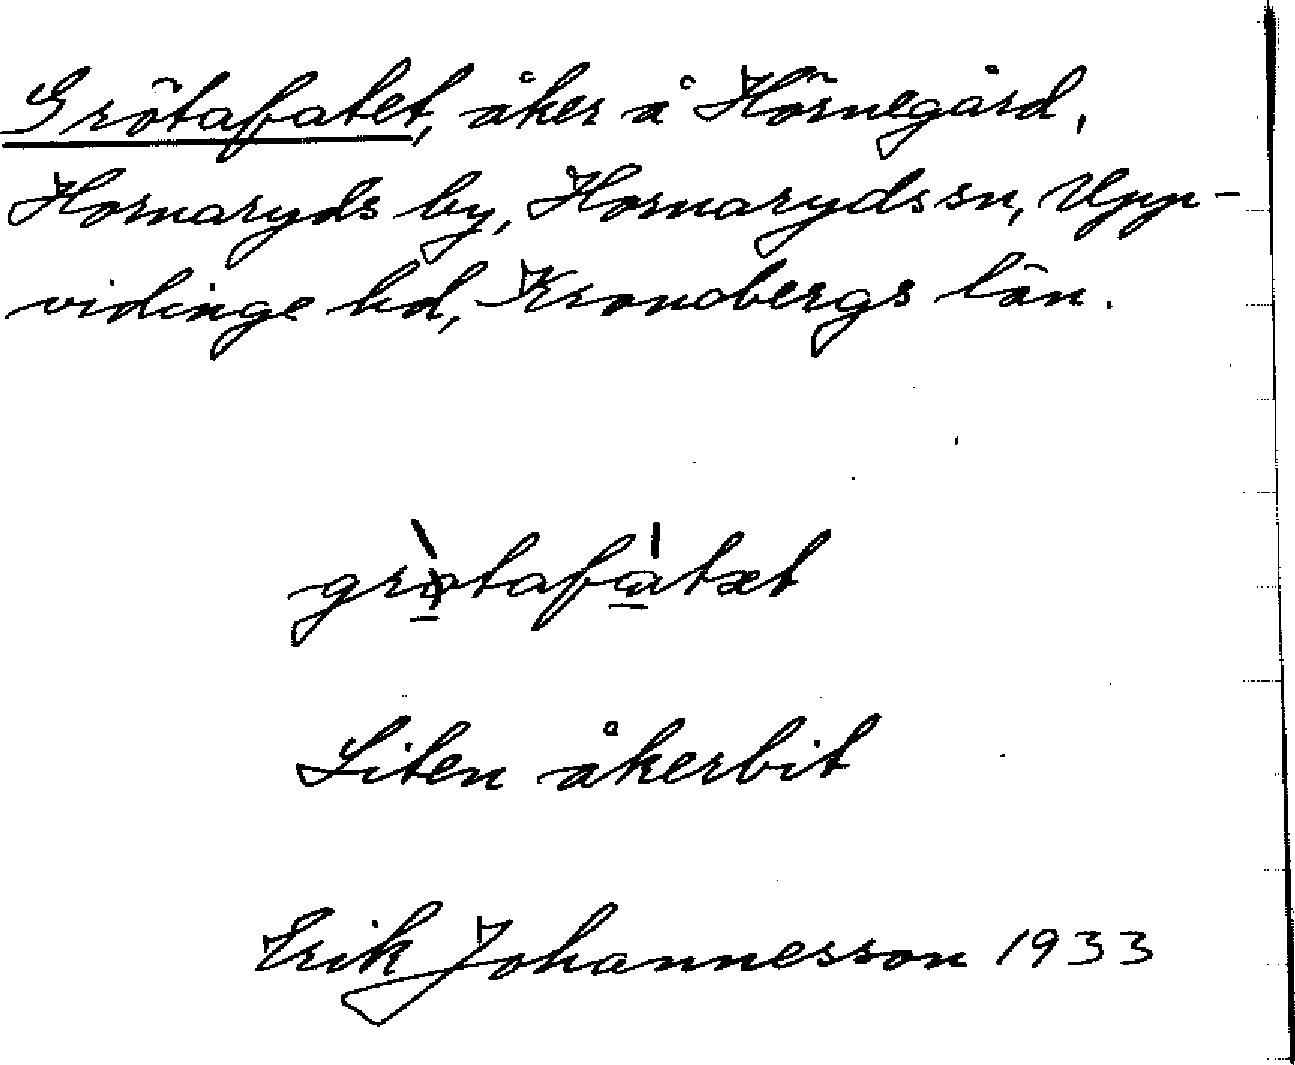 Grötafatet, åker å Hörnegård,
Hornaryds by, Hornaryds sn, Upp-
vidinge hd, Kronobergs län.
grøtafatət
Liten åkerbit
Erik Johannesson 1933